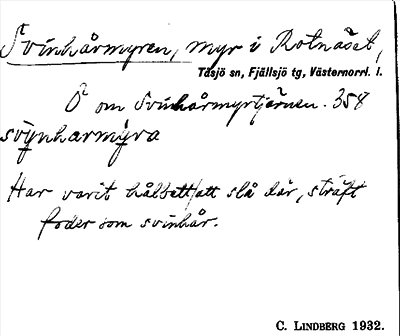 Svinhårmyren, myr i Rotnäset,
Tåsjö sn, Fjällsjö tg, Västernorrl. l.
Ö om Svinhårmyrtjärnen. 358
svȳnharmȳra
Har varit hålbett att slå där, sträft
foder som svinhår.
C. LINDBERG 1932.